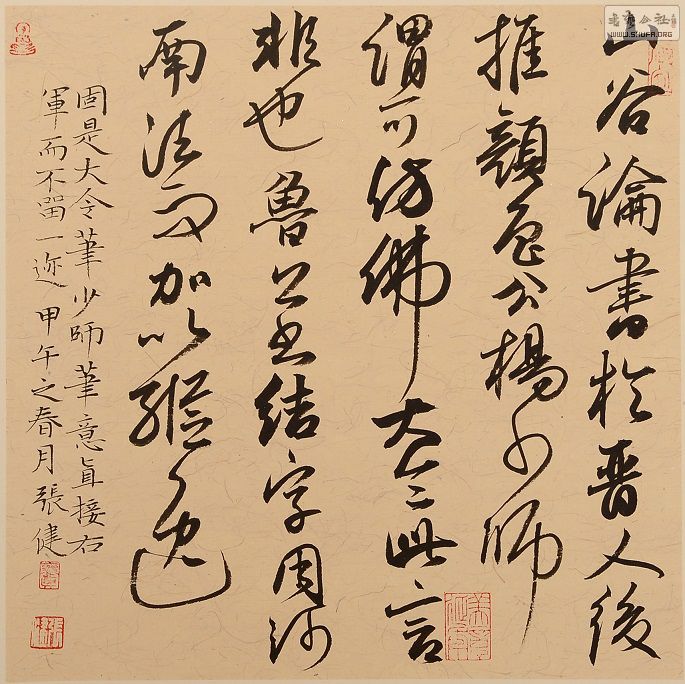 书法公社
WWW.SHUFA.ORG
山谷論書於晉人後
推顏魯公楊少師
謂可仿佛大令此言
非也魯公書結字用河
南法而加以縱逸
固是大令筆少師筆意直接右
軍而不留一迹甲午之春月張健